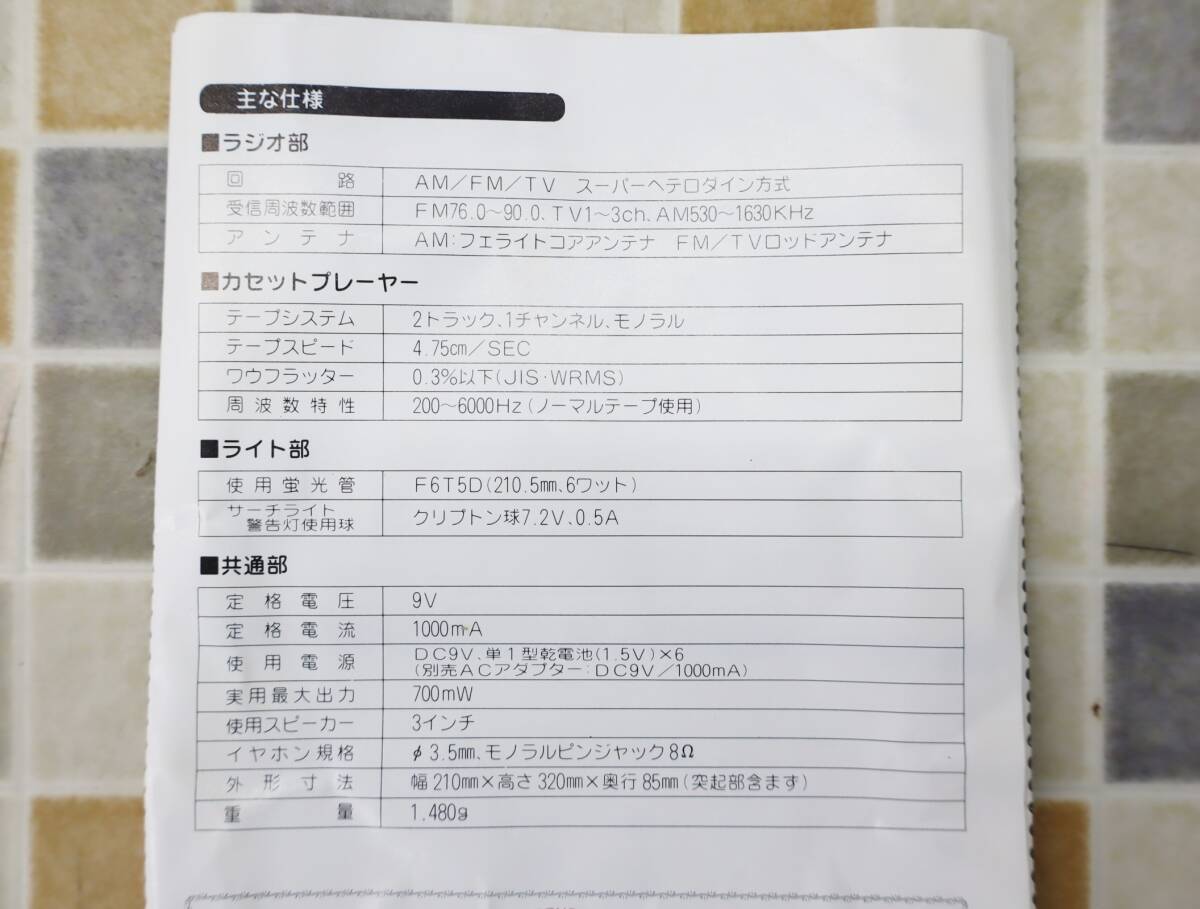 主な仕様
■ラジオ部
回路 AM/FM/TV スーパーヘテロダイン方式
受信周波数範囲 FM76.0～90.0、TV1～3ch、AM530～1630KHz
アンテナ AM:フェライトコアアンテナ FM/TVロッドアンテナ
■カセットプレーヤー
テープシステム 2トラック、1チャンネル、モノラル
テープスピード 4.75cm/SEC
ワウフラッター 0.3%以下(JIS·WRMS)
周波数特性 200～6000Hz(ノーマルテープ使用)
■ライト部
使用蛍光管 F6T5D(210.5mm、6ワット)
サーチライト
警告灯使用球 クリプトン球7.2V、0.5A
■共通部
定格電圧 9V
定格電流 1000mA
使用電源 DC9V、単1型乾電池(1.5V)×6
(別売ACアダプター:DC9V/1000mA)
実用最大出力 700mW
使用スピーカー 3インチ
イヤホン規格 φ3.5mm、モノラルピンジャック8Ω
外形寸法 幅210mm×高さ320mm×奥行85mm(突起部含まず)
重量 1.480g